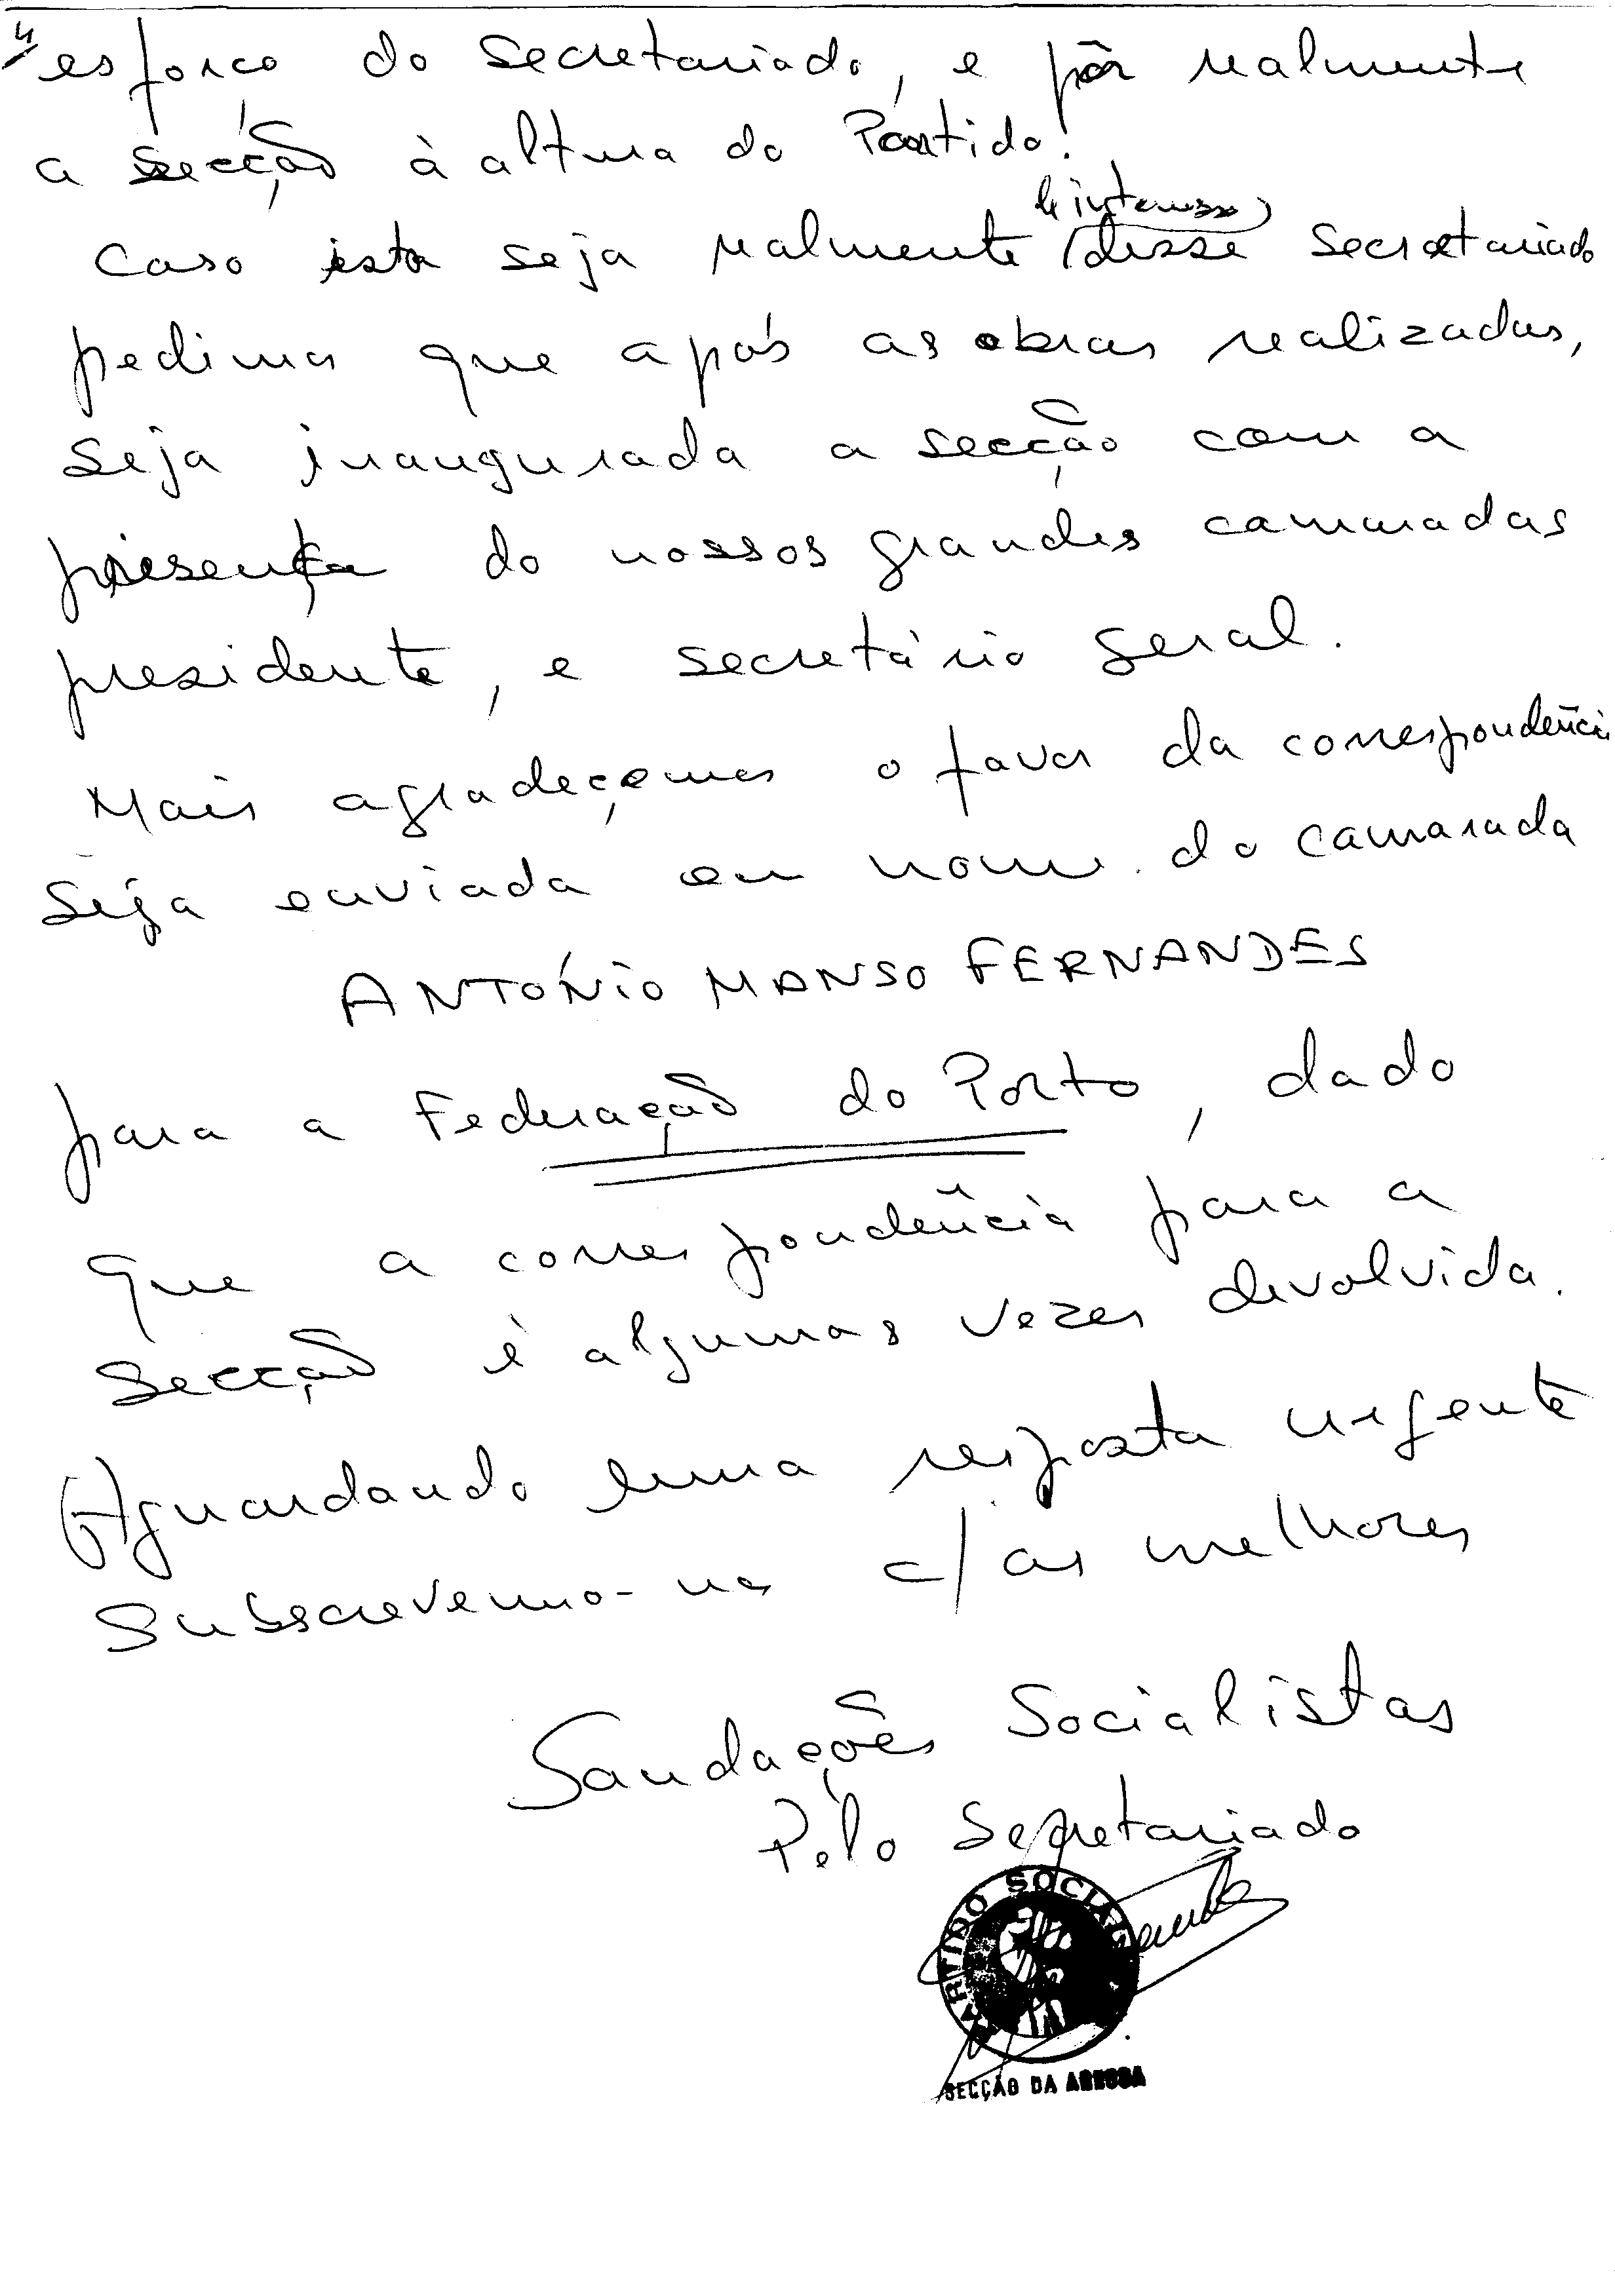 4
esforço do secretariado, e pôr realmente
a secção à altura do Partido.
de interesse
Caso isto seja realmente desse secretariado
pedimos que após as obras realizadas,
seja inaugurada a secção com a
presença do nossos grandes camaradas
presidente, e secretário geral.
Mais agradeçemos o favor da correspondência
seja enviada em nome do camarada
ANTÓNIO MANSO FERNANDES
para a Federação do Porto, dado
que a correspondência para a
secção é algumas vezes devolvida.
Aguardando uma resposta urgente
Subscrevemo-nos c/ as melhores
Saudações Socialistas
Pelo Secretariado
PARTIDO SOCIALISTA
SECÇÃO DA